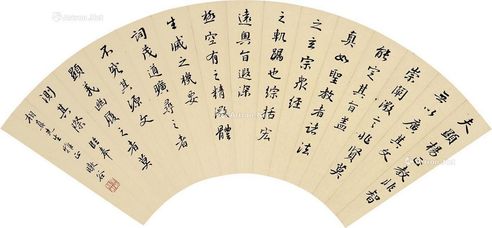 夫顯揚正教非智
無以廣其文
崇闡微言非賢莫
能定其旨蓋
真如聖教者諸法
之玄宗眾經
之軌躅也綜括宏
遠奧旨遐深
極空有之精微體
生滅之機要
詞茂道曠尋之者
不究其源文
顯義幽履之者莫
測其際 臨奉
先生雅正